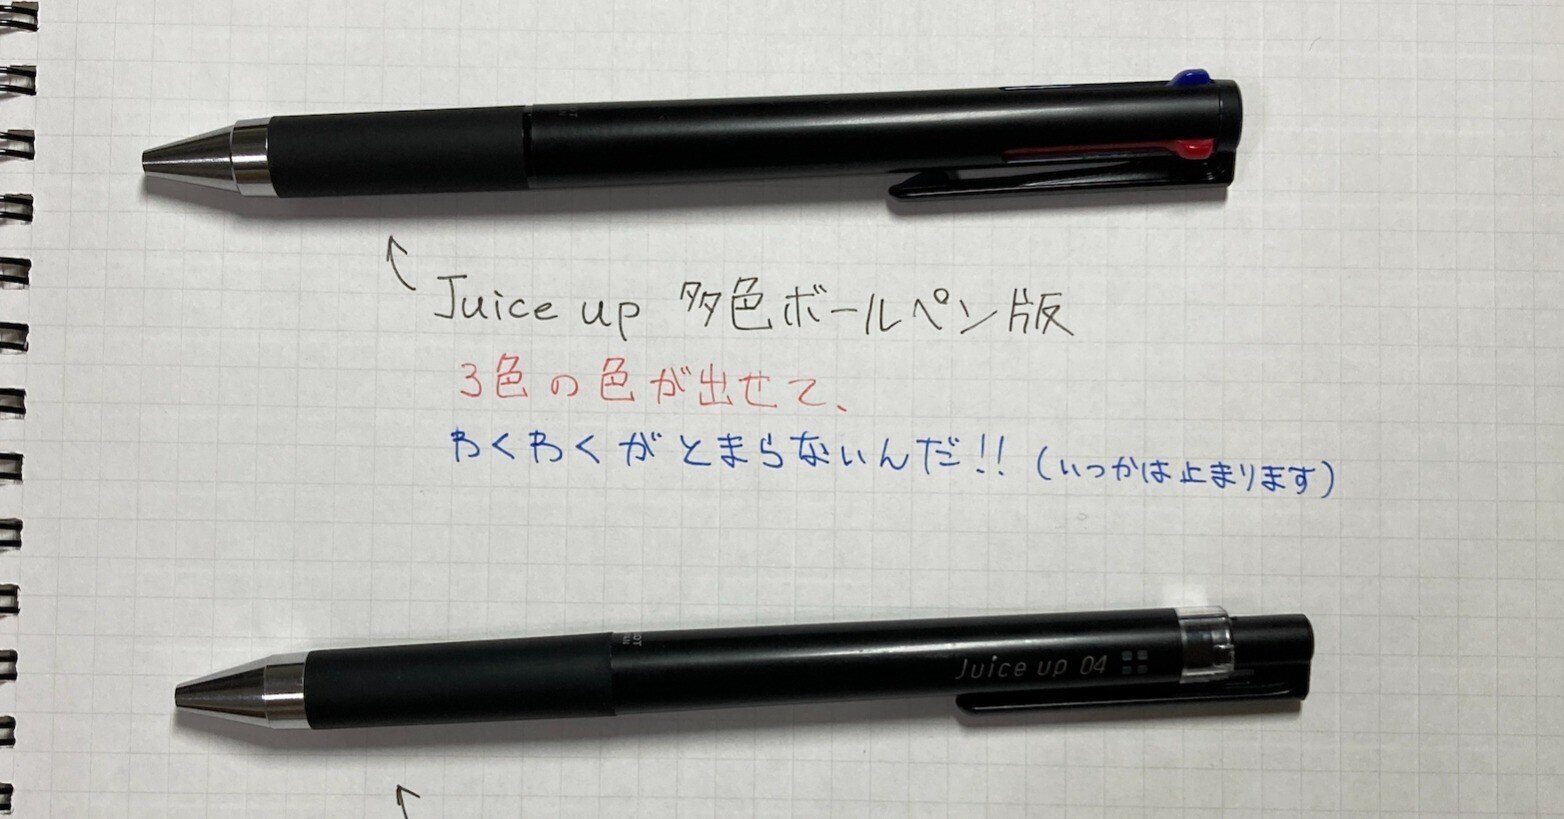 Juice up 多色ボールペン版
3色の色が出せて、
わくわくがとまらないんだ!! (いつかは止まります)
Juice up 04